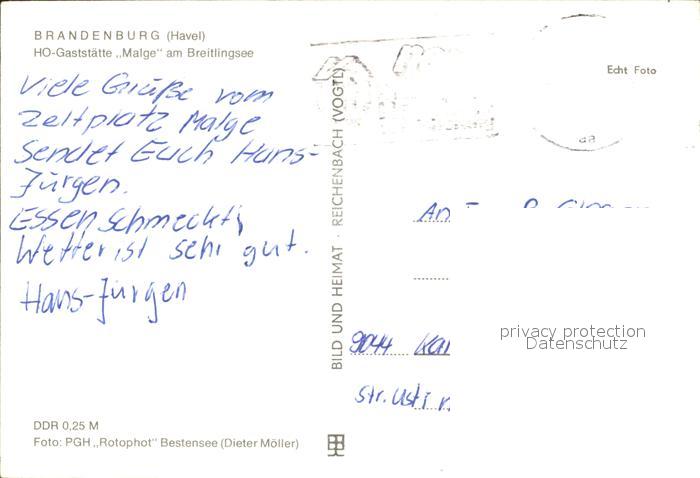 BRANDENBURG (Havel)
HO-Gaststätte „Malge" am Breitlingsee
Viele Grüße vom
Zeltplatz Malge
sendet Euch Hans-
Jürgen.
Essen schmeckt,
Wetter ist sehr gut.
Hans-Jürgen
DDR 0,25 M
Foto: PGH „Rotophot" Bestensee (Dieter Möller)
BILD UND HEIMAT · REICHENBACH (VOGTL)
Echt Foto
An
9044
Str. Usti
privacy protection
Datenschutz